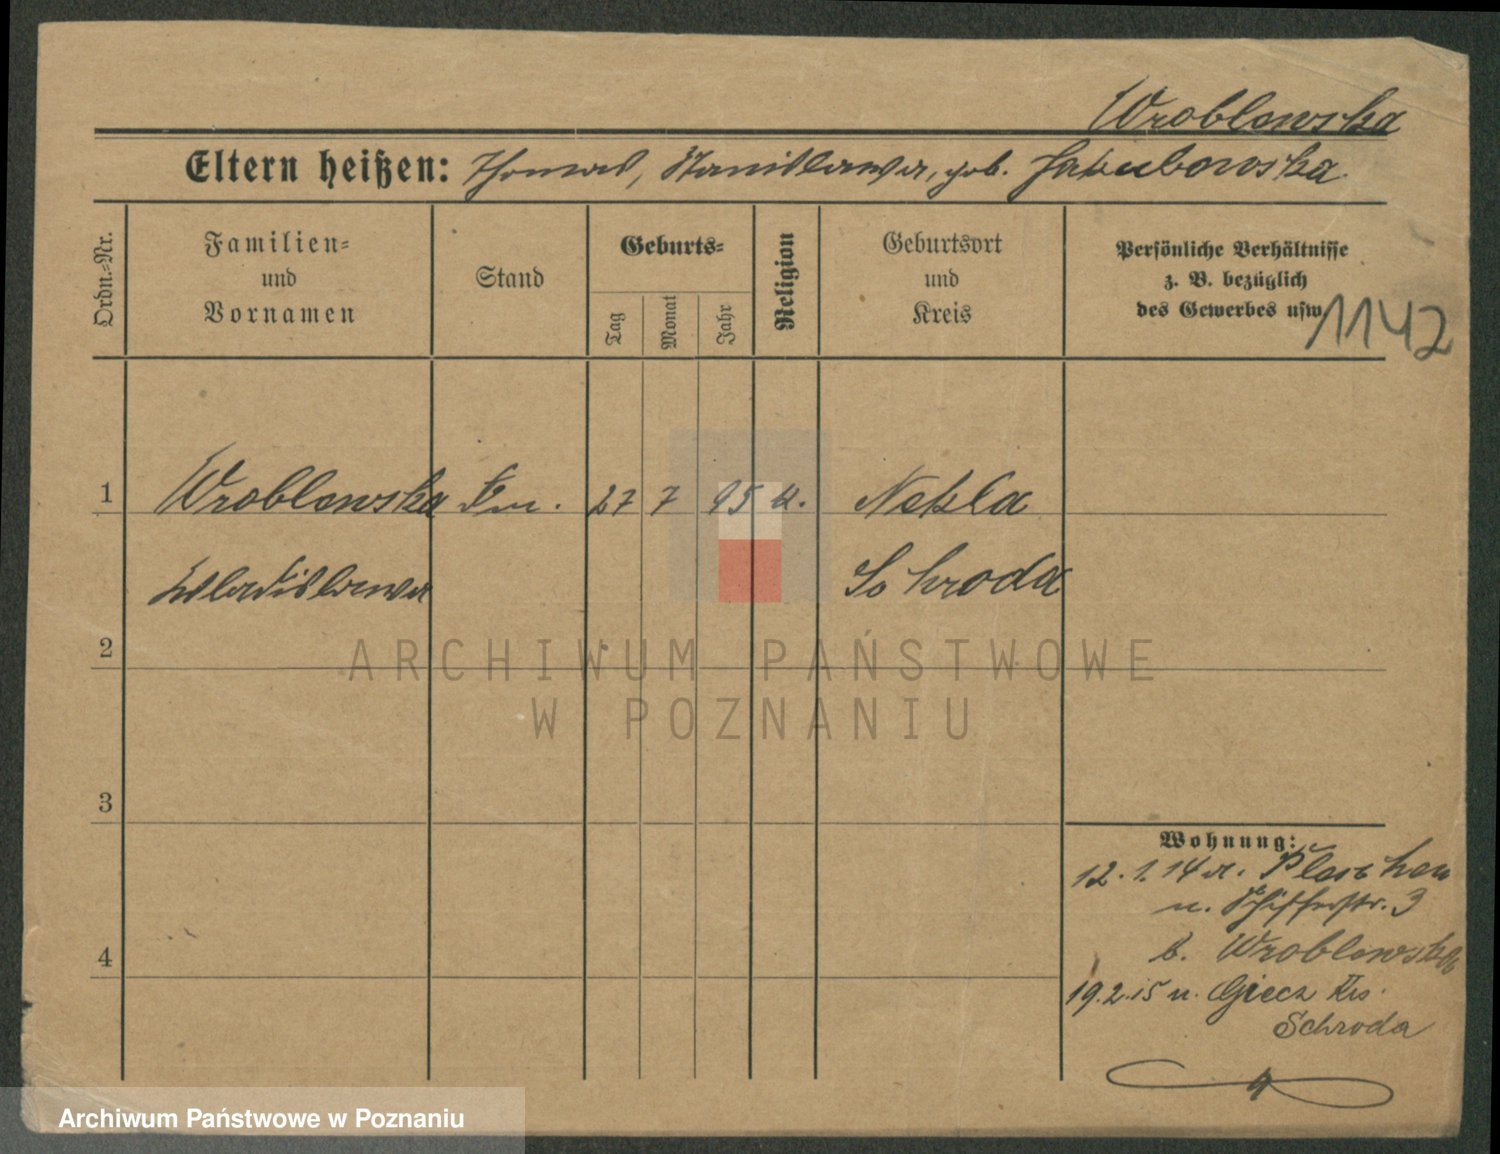 Wroblewska
Eltern heißen: Thomas, Stanislawa, geb. Jakubowska
Ordn.=Nr.
Familien=
und
Vornamen
Stand
Geburts=
Tag
Monat
Jahr
Religion
Geburtsort
und
Kreis
Persönliche Verhältnisse
z. B. bezüglich
des Gewerbes usw
1142
1 Wroblewska 27 7 95 k. Nekla
Wladislawa Schroda
2
3
4
Wohnung:
12.1.14 a. Pleschen
n. 3
b. Wroblewska
19.2.15 n. Giecz Krs.
Schroda
ARCHIWUM PAŃSTWOWE
W POZNANIU
Archiwum Państwowe w Poznaniu